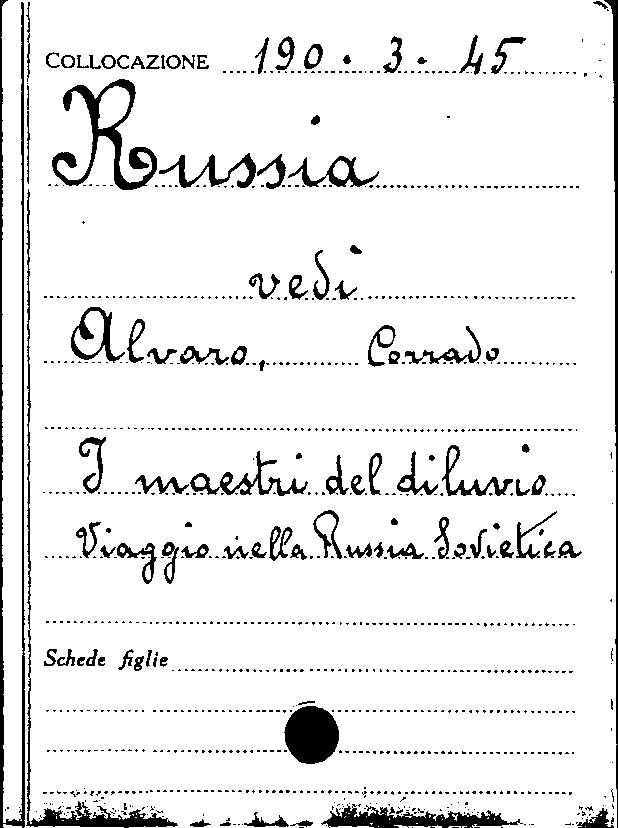 COLLOCAZIONE 190 . 3 . 45
Russia
vedi
Alvaro, Corrado
I maestri del diluvio
Viaggio nella Russia Sovietica
Schede figlie